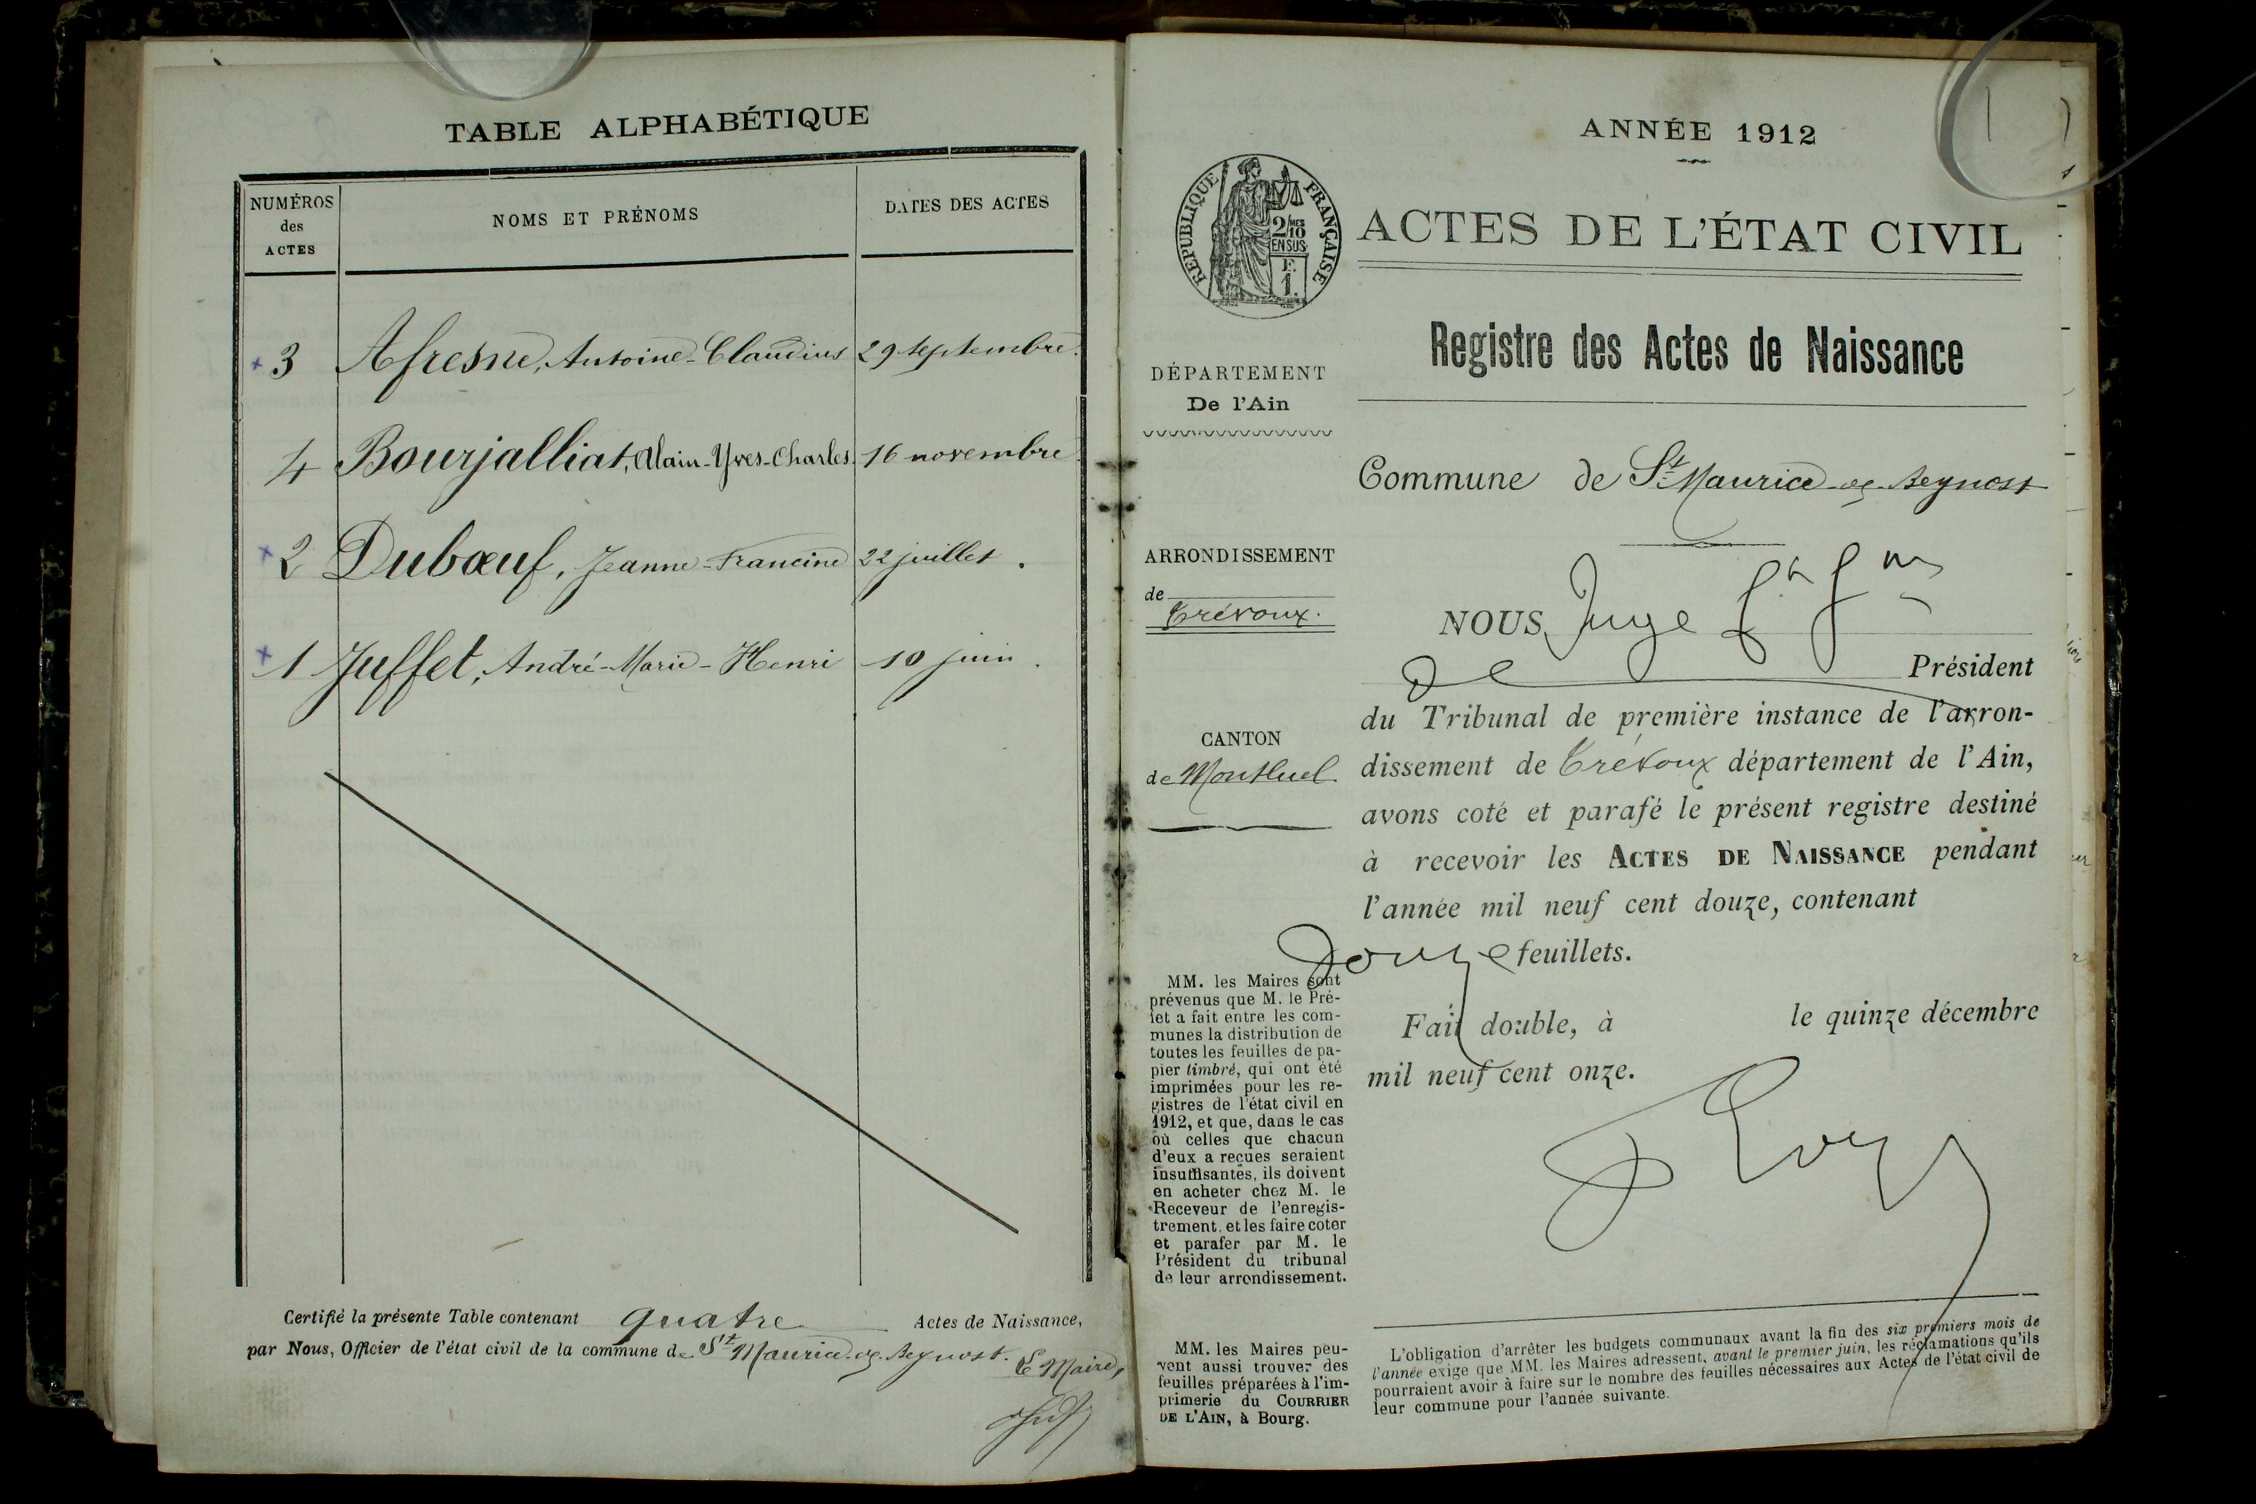 TABLE ALPHABÉTIQUE
NUMÉROS
des
ACTES
NOMS ET PRÉNOMS
DATES DES ACTES
+ 3 Afresne, Antoine-Claudius 29 septembre.
4 Bourjalliat, Alain-Yves-Charles. 16 novembre
+ 2 Dubœuf, Jeanne-Francine 22 juillet.
+ 1 Juffet, André-Marie-Henri 10 juin.
Certifié la présente Table contenant quatre Actes de Naissance,
par Nous, Officier de l'état civil de la commune de St Maurice-de-Beynost.
Le Maire,
ANNÉE 1912
RÉPUBLIQUE FRANÇAISE
2/10 MES
EN SUS
F.
1.
ACTES DE L'ÉTAT CIVIL
Registre des Actes de Naissance
DÉPARTEMENT
De l'Ain
Commune de St Maurice-de-Beynost
ARRONDISSEMENT
de
Trévoux.
CANTON
de Montluel
NOUS, Juge
Président
du Tribunal de première instance de l'arron-
dissement de Trévoux département de l'Ain,
avons coté et parafé le présent registre destiné
à recevoir les ACTES DE NAISSANCE pendant
l'année mil neuf cent douze, contenant
Douze feuillets.
Fait double, à le quinze décembre
mil neuf cent onze.
MM. les Maires sont
prévenus que M. le Pré-
fet a fait entre les com-
munes la distribution de
toutes les feuilles de pa-
pier timbré, qui ont été
imprimées pour les re-
gistres de l'état civil en
1912, et que, dans le cas
où celles que chacun
d'eux a reçues seraient
insuffisantes, ils doivent
en acheter chez M. le
Receveur de l'enregis-
trement, et les faire coter
et parafer par M. le
Président du tribunal
de leur arrondissement.
MM. les Maires peu-
vent aussi trouver des
feuilles préparées à l'im-
primerie du COURRIER
DE L'AIN, à Bourg.
L'obligation d'arrêter les budgets communaux avant la fin des six premiers mois de
l'année exige que MM. les Maires adressent, avant le premier juin, les réclamations qu'ils
pourraient avoir à faire sur le nombre des feuilles nécessaires aux Actes de l'état civil de
leur commune pour l'année suivante.